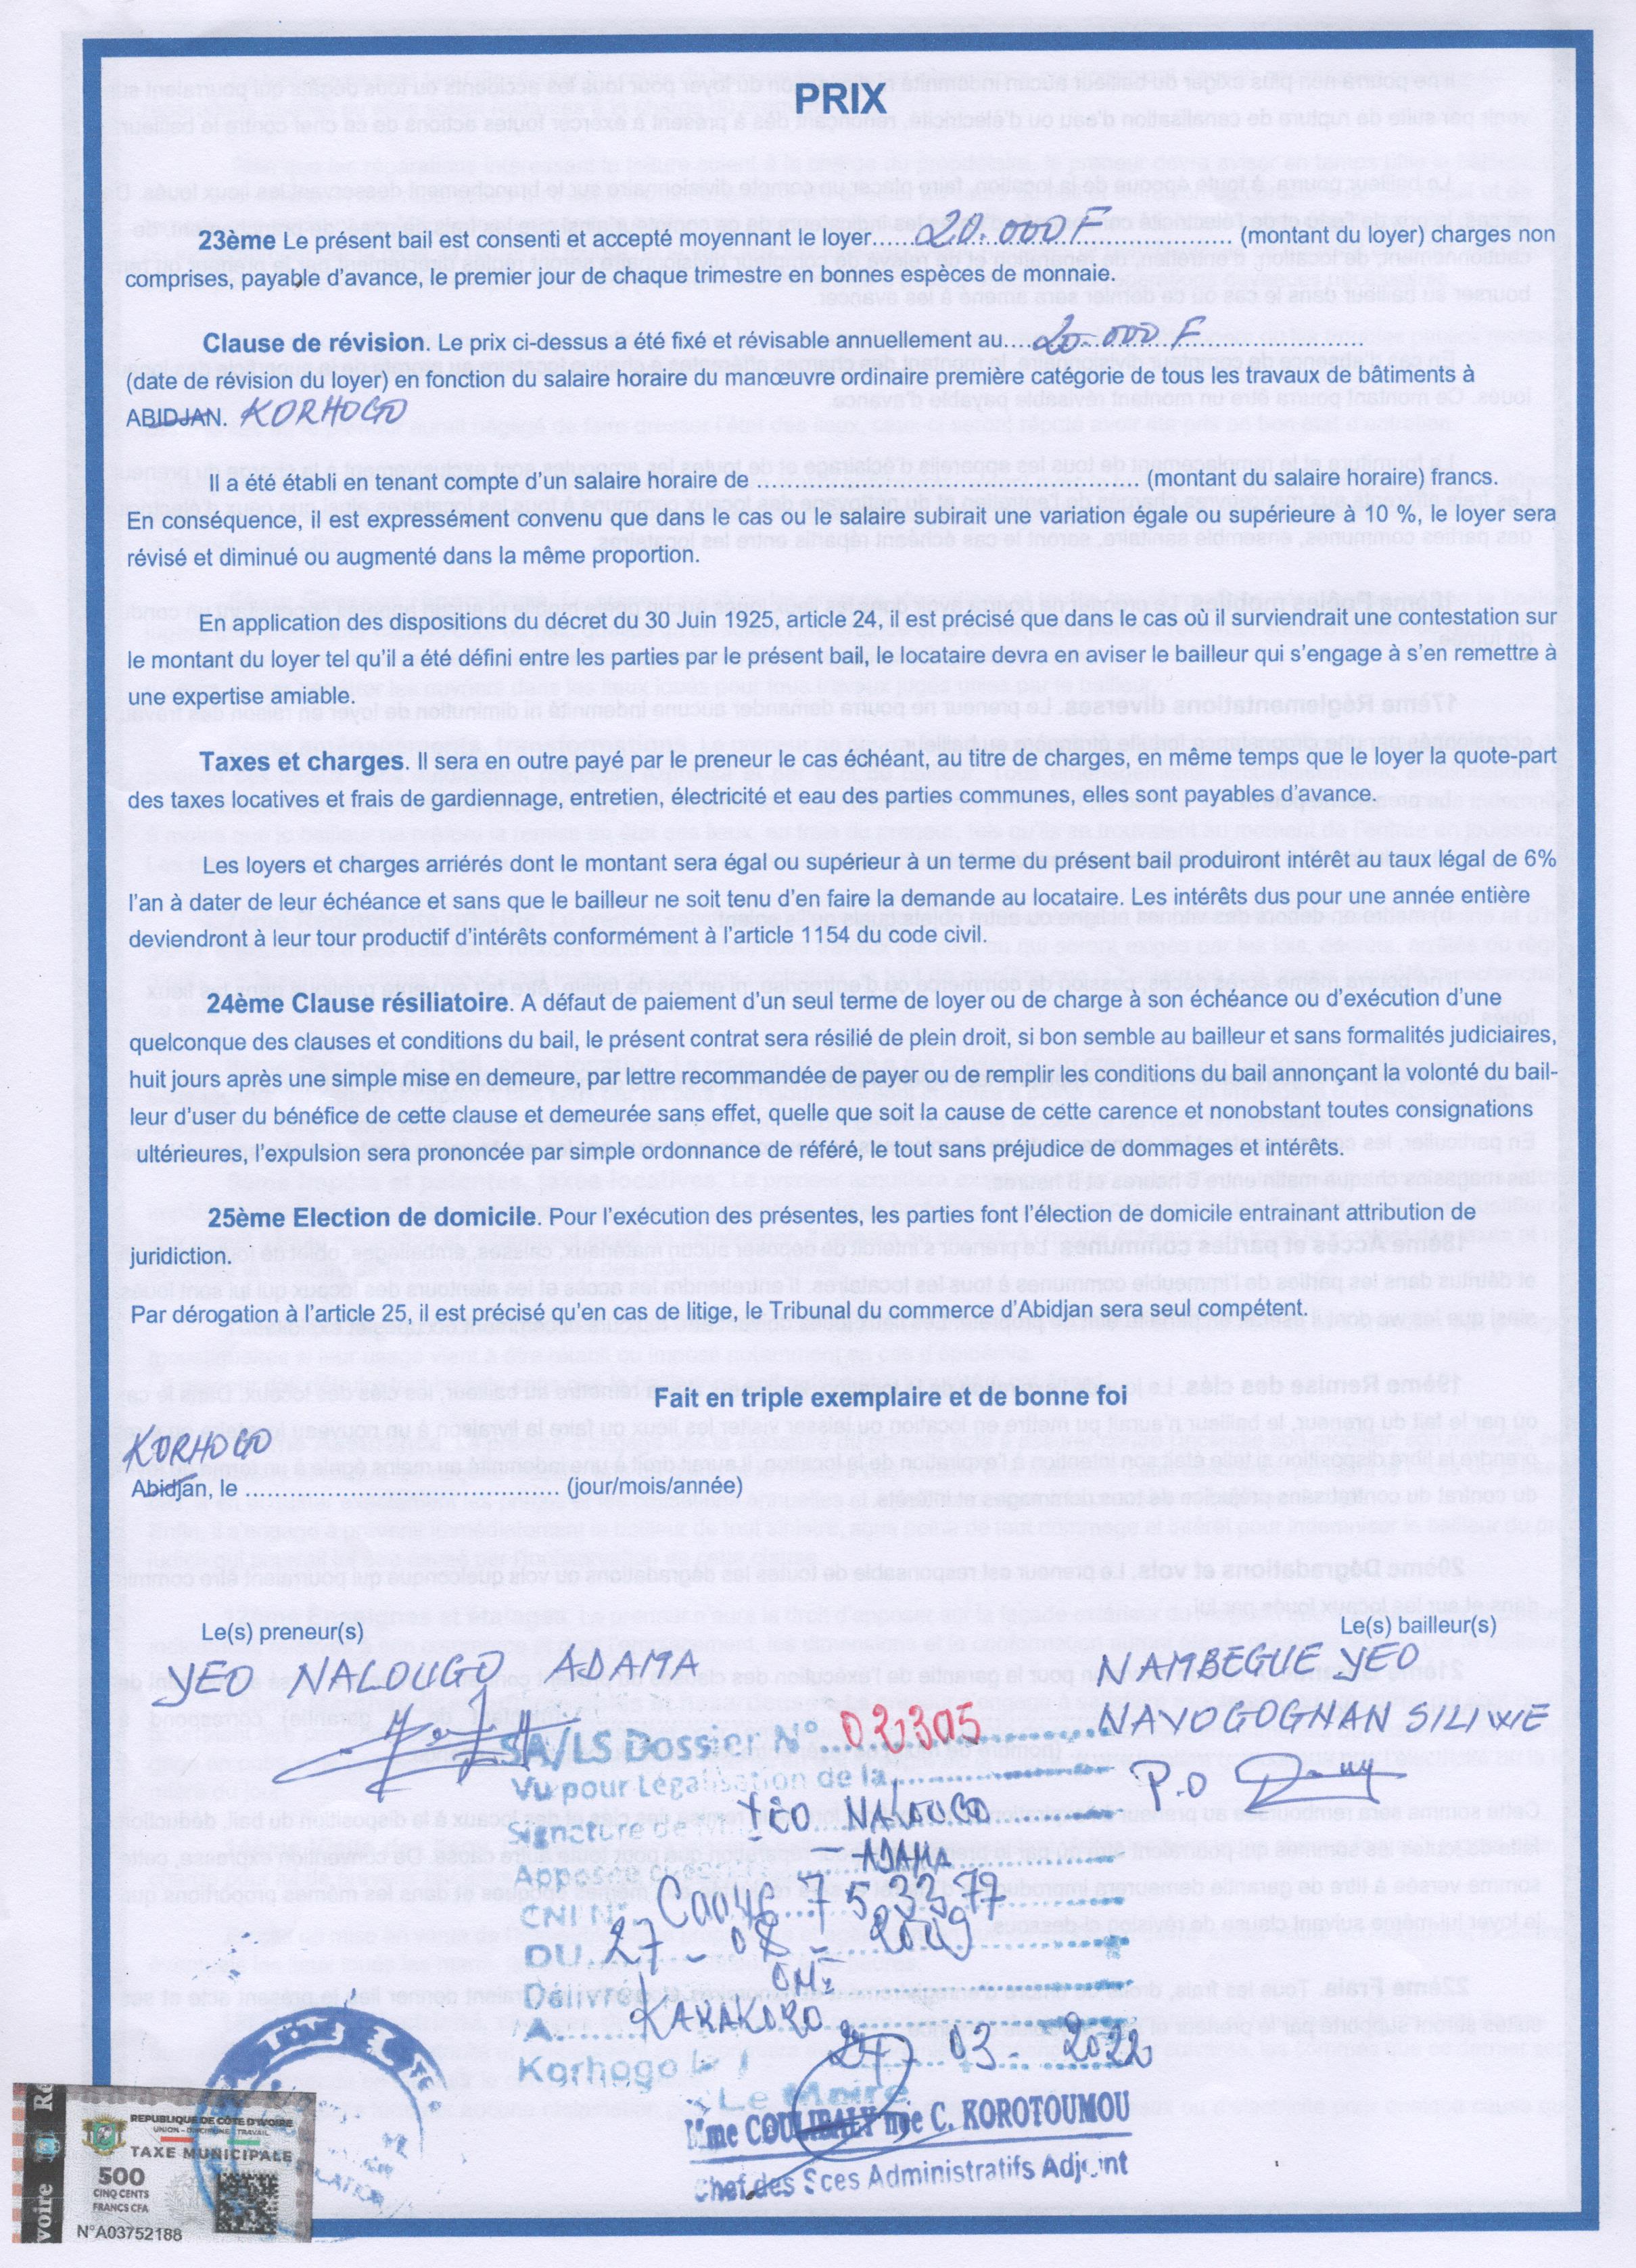 PRIX
23ème Le présent bail est consenti et accepté moyennant le loyer...... 20.000 F .................. (montant du loyer) charges non
comprises, payable d'avance, le premier jour de chaque trimestre en bonnes espèces de monnaie.
Clause de révision. Le prix ci-dessus a été fixé et révisable annuellement au.... 20.000 F ......................
(date de révision du loyer) en fonction du salaire horaire du manœuvre ordinaire première catégorie de tous les travaux de bâtiments à
ABIDJAN. KORHOGO
Il a été établi en tenant compte d'un salaire horaire de ........................................................ (montant du salaire horaire) francs.
En conséquence, il est expressément convenu que dans le cas ou le salaire subirait une variation égale ou supérieure à 10 %, le loyer sera
révisé et diminué ou augmenté dans la même proportion.
En application des dispositions du décret du 30 Juin 1925, article 24, il est précisé que dans le cas où il surviendrait une contestation sur
le montant du loyer tel qu'il a été défini entre les parties par le présent bail, le locataire devra en aviser le bailleur qui s'engage à s'en remettre à
une expertise amiable.
Taxes et charges. Il sera en outre payé par le preneur le cas échéant, au titre de charges, en même temps que le loyer la quote-part
des taxes locatives et frais de gardiennage, entretien, électricité et eau des parties communes, elles sont payables d'avance.
Les loyers et charges arriérés dont le montant sera égal ou supérieur à un terme du présent bail produiront intérêt au taux légal de 6%
l'an à dater de leur échéance et sans que le bailleur ne soit tenu d'en faire la demande au locataire. Les intérêts dus pour une année entière
deviendront à leur tour productif d'intérêts conformément à l'article 1154 du code civil.
24ème Clause résiliatoire. A défaut de paiement d'un seul terme de loyer ou de charge à son échéance ou d'exécution d'une
quelconque des clauses et conditions du bail, le présent contrat sera résilié de plein droit, si bon semble au bailleur et sans formalités judiciaires,
huit jours après une simple mise en demeure, par lettre recommandée de payer ou de remplir les conditions du bail annonçant la volonté du bail-
leur d'user du bénéfice de cette clause et demeurée sans effet, quelle que soit la cause de cette carence et nonobstant toutes consignations
ultérieures, l'expulsion sera prononcée par simple ordonnance de référé, le tout sans préjudice de dommages et intérêts.
25ème Election de domicile. Pour l'exécution des présentes, les parties font l'élection de domicile entrainant attribution de
juridiction.
Par dérogation à l'article 25, il est précisé qu'en cas de litige, le Tribunal du commerce d'Abidjan sera seul compétent.
Fait en triple exemplaire et de bonne foi
KORHOGO
Abidjan, le .............................................. (jour/mois/année)
Le(s) preneur(s)
Le(s) bailleur(s)
YEO NALOUGO ADAMA
NAMBEGUE YEO
NAVOGOGNAN SILIWE
P.O
SA/LS Dossier N° 02305
Vu pour Légalisation de la
Signature de M YEO NALOUGO
ADAMA
Apposée ci-contre
CNI N° C0046 7533 77
DU 27 - 08 - 2009
Délivré ONI
A KAKAKORO
Korhogo le 24 03 - 2022
Le Maire
Mme COULIBALY née C. KOROTOUMOU
Chef des Sces Administratifs Adjoint
REPUBLIQUE DE CÔTE D'IVOIRE
UNION - DISCIPLINE - TRAVAIL
TAXE MUNICIPALE
500
CINQ CENTS
FRANCS CFA
N°A03752188